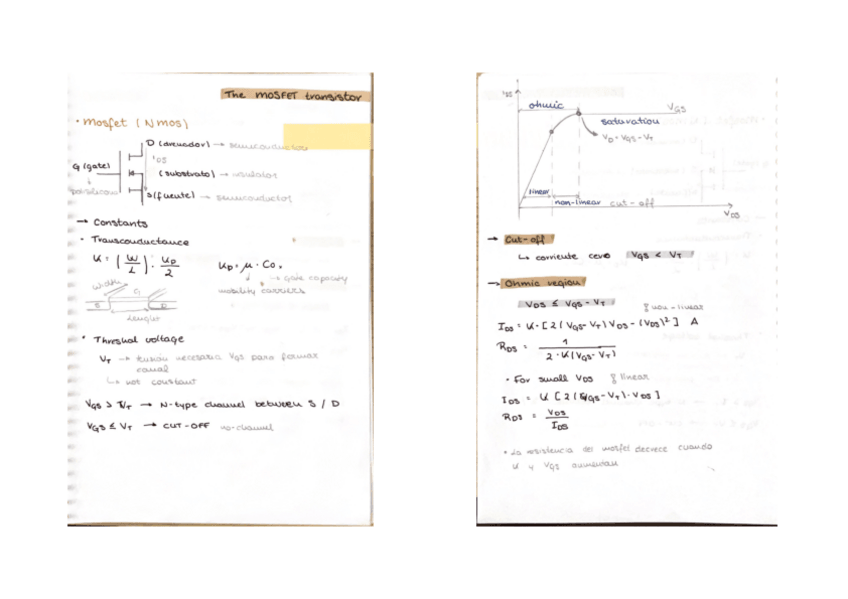 The MOSFET transistor
· mosfet (N mos)
D (drenador) → semiconductor
IDS
G (gate)
(substrato) → aislador
polisilicon
S (fuente) → semiconductor
→ Constants
· Transconductance
K = (W/L) · UP/2
UP = μ · Co x
→ gate capacity
mobility carriers
width
G
S
D
lenght
· Threshal voltage
VT → tensión necesaria VGS para formar
canal
↳ not constant
VGS > VT → N-type channel between S / D
VGS ≤ VT → CUT-OFF no-channel
IDS
ohmic
VGS
saturation
VD = VGS - VT
linear
non-linear cut-off
VDS
→ Cut-off
↳ corriente cero VGS < VT
→ Ohmic region
VDS ≤ VGS - VT
non-linear
IDS = K · [2(VGS - VT) VDS - (VDS)²] A
RDS = 1 / 2·K(VGS - VT)
· For small VDS linear
IDS = K [2(VGS - VT) · VDS]
RDS = VDS / IDS
· La resistencia del mosfet decrece cuando
K y VGS aumentan